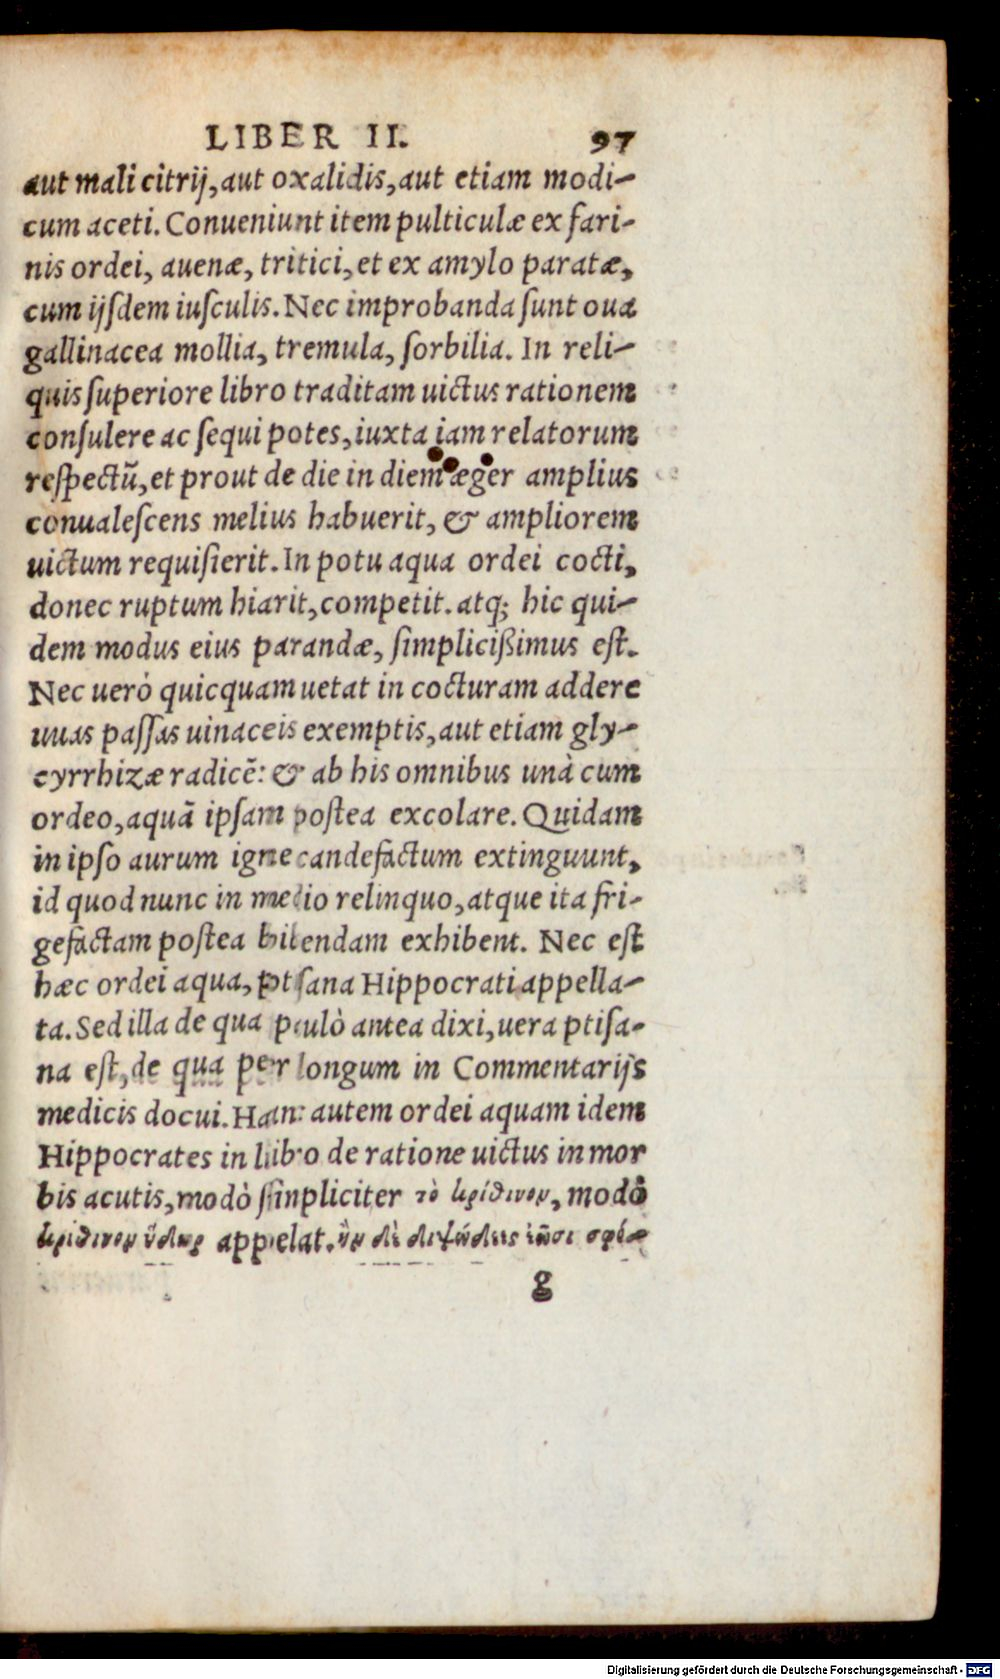 LIBER II. 97
aut mali citrij, aut oxalidis, aut etiam modi-
cum aceti. Conueniunt item pulticulæ ex fari-
nis ordei, auenæ, tritici, et ex amylo paratæ,
cum ijſdem iuſculis. Nec improbanda ſunt oua
gallinacea mollia, tremula, ſorbilia. In reli-
quis ſuperiore libro traditam uictus rationem
conſulere ac ſequi potes, iuxta iam relatorum
reſpectũ, et prout de die in diem æger amplius
conualeſcens melius habuerit, & ampliorem
uictum requiſierit. In potu aqua ordei cocti,
donec ruptum hiarit, competit. atq; hic qui-
dem modus eius parandæ, ſimpliciſsimus eſt.
Nec uerò quicquam uetat in cocturam addere
uuas paſſas uinaceis exemptis, aut etiam gly-
cyrrhizæ radicẽ: & ab his omnibus unà cum
ordeo, aquã ipſam poſtea excolare. Quidam
in ipſo aurum igne candefactum extinguunt,
id quod nunc in medio relinquo, atque ita fri-
gefactam poſtea bibendam exhibent. Nec eſt
hæc ordei aqua, ptiſana Hippocrati appella-
ta. Sed illa de qua paulò antea dixi, uera ptiſa-
na eſt, de qua per longum in Commentarijs
medicis docui. Hanc autem ordei aquam idem
Hippocrates in libro de ratione uictus in mor
bis acutis, modò ſimpliciter τὸ κρίθινον, modò
κρίθινον ὕδωρ appelat. ἢν δὲ διψώδεις ἐῶσι
g
Digitalisierung gefördert durch die Deutsche Forschungsgemeinschaft - DFG